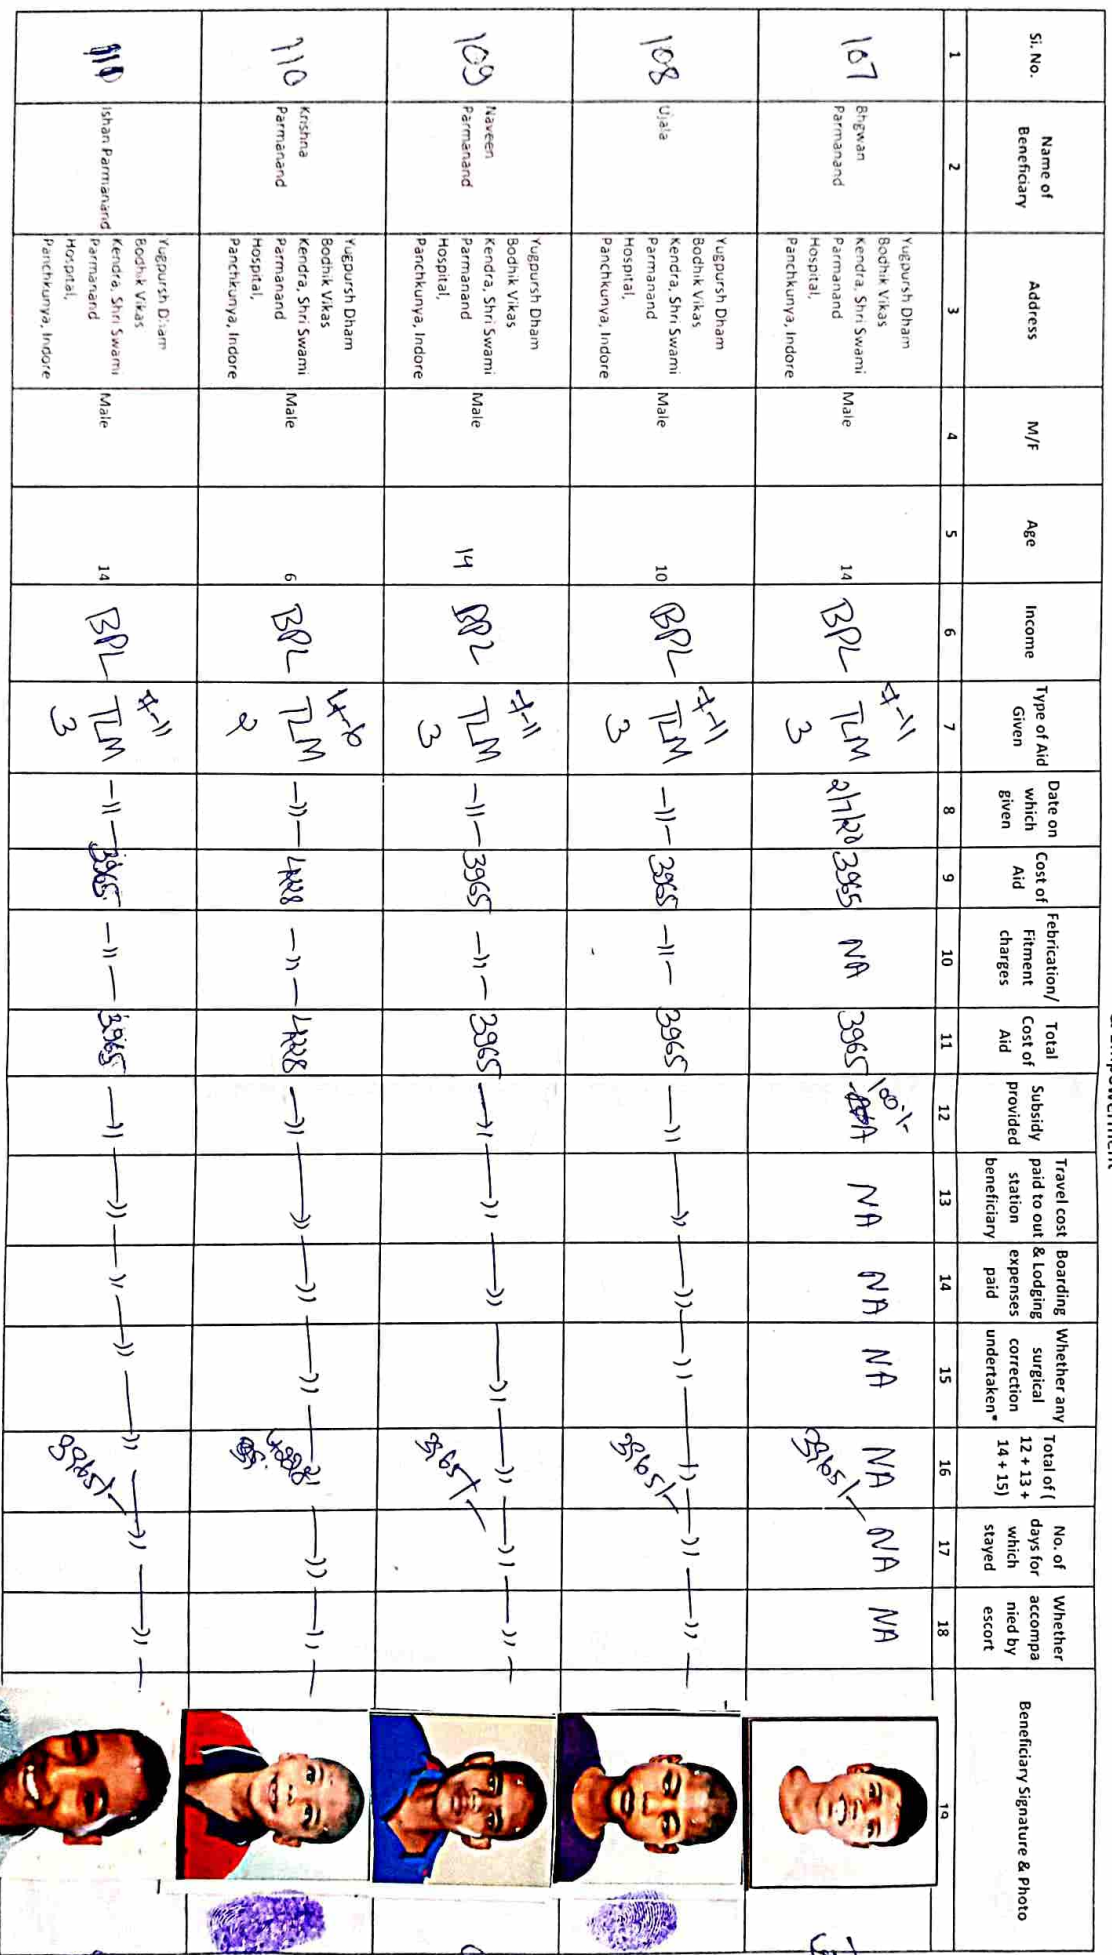 & Empowerment
Si. No.
Name of
Beneficiary
Address
M/F
Age
Income
Type of Aid
Given
Date on
which
given
Cost of
Aid
Febrication/
Fitment
charges
Total
Cost of
Aid
Subsidy
provided
Travel cost
paid to out
station
beneficiary
Boarding
& Lodging
expenses
paid
Whether any
surgical
correction
undertaken*
Total of (
12 + 13 +
14 + 15)
No. of
days for
which
stayed
Whether
accompa
nied by
escort
Beneficiary Signature & Photo
1 2 3 4 5 6 7 8 9 10 11 12 13 14 15 16 17 18 19
107
Bhgwan
Parmanand
Yugpursh Dham
Bodhik Vikas
Kendra, Shri Swami
Parmanand
Hospital,
Panchkunya, Indore
Male
14
BPL
7-11
TLM
3
2/7/20
3965
NA
3965
100%
NA
NA
NA
NA
3965/-
NA
NA
108
Ujala
Yugpursh Dham
Bodhik Vikas
Kendra, Shri Swami
Parmanand
Hospital,
Panchkunya, Indore
Male
10
BPL
7-11
TLM
3
-11-
3965
-11-
3965
-11-
-11-
-11-
-11-
-11-
3965/-
-11-
-11-
109
Naveen
Parmanand
Yugpursh Dham
Bodhik Vikas
Kendra, Shri Swami
Parmanand
Hospital,
Panchkunya, Indore
Male
14
BPL
7-11
TLM
3
-11-
3965
-11-
3965
-11-
-11-
-11-
-11-
-11-
3965/-
-11-
-11-
110
Krishna
Parmanand
Yugpursh Dham
Bodhik Vikas
Kendra, Shri Swami
Parmanand
Hospital,
Panchkunya, Indore
Male
6
BPL
4-6
TLM
2
-11-
4228
-11-
4228
-11-
-11-
-11-
-11-
-11-
4228
-11-
-11-
110
Ishan Parmanand
Yugpursh Dham
Bodhik Vikas
Kendra, Shri Swami
Parmanand
Hospital,
Panchkunya, Indore
Male
14
BPL
7-11
TLM
3
-11-
3965
-11-
3965
-11-
-11-
-11-
-11-
-11-
3965/-
-11-
-11-